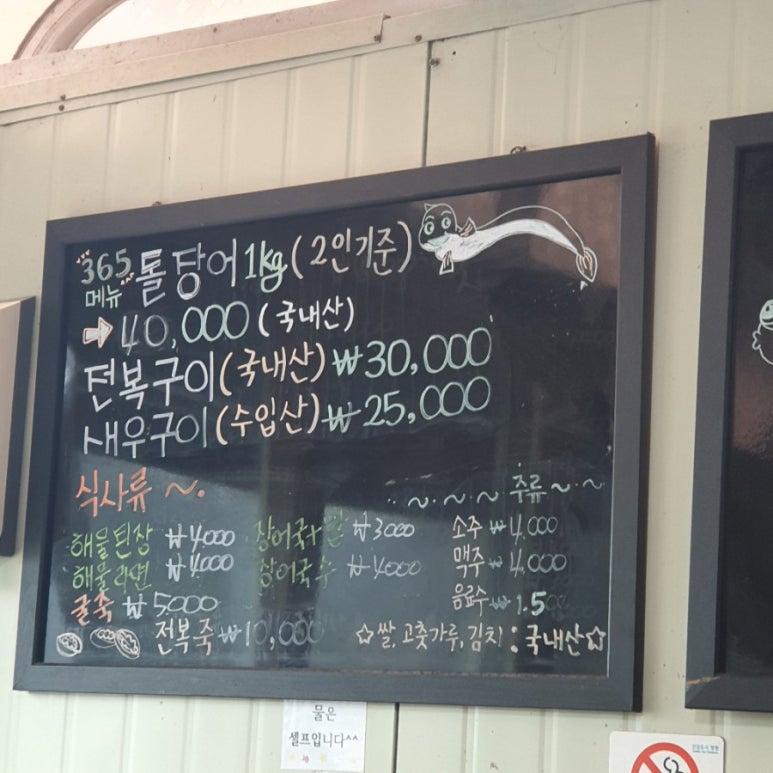 365
메뉴
돌장어 1kg (2인기준)
→ 40,000 (국내산)
전복구이 (국내산) ₩30,000
새우구이 (수입산) ₩25,000
식사류 ~.
~ . ~ . ~ 주류 ~ . ~
해물된장 ₩4,000
장어국+밥 ₩3000
소주 ₩4,000
해물라면 ₩4,000
장어국수 ₩4000
맥주 ₩4,000
굴죽 ₩5,000
음료수 ₩1.500
전복죽 ₩10,000
☆쌀, 고춧가루, 김치 : 국내산☆
물은
셀프입니다^^